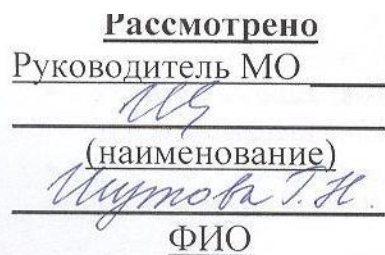 Рассмотрено
Руководитель МО
(наименование)
Шутова Г.Н.
ФИО